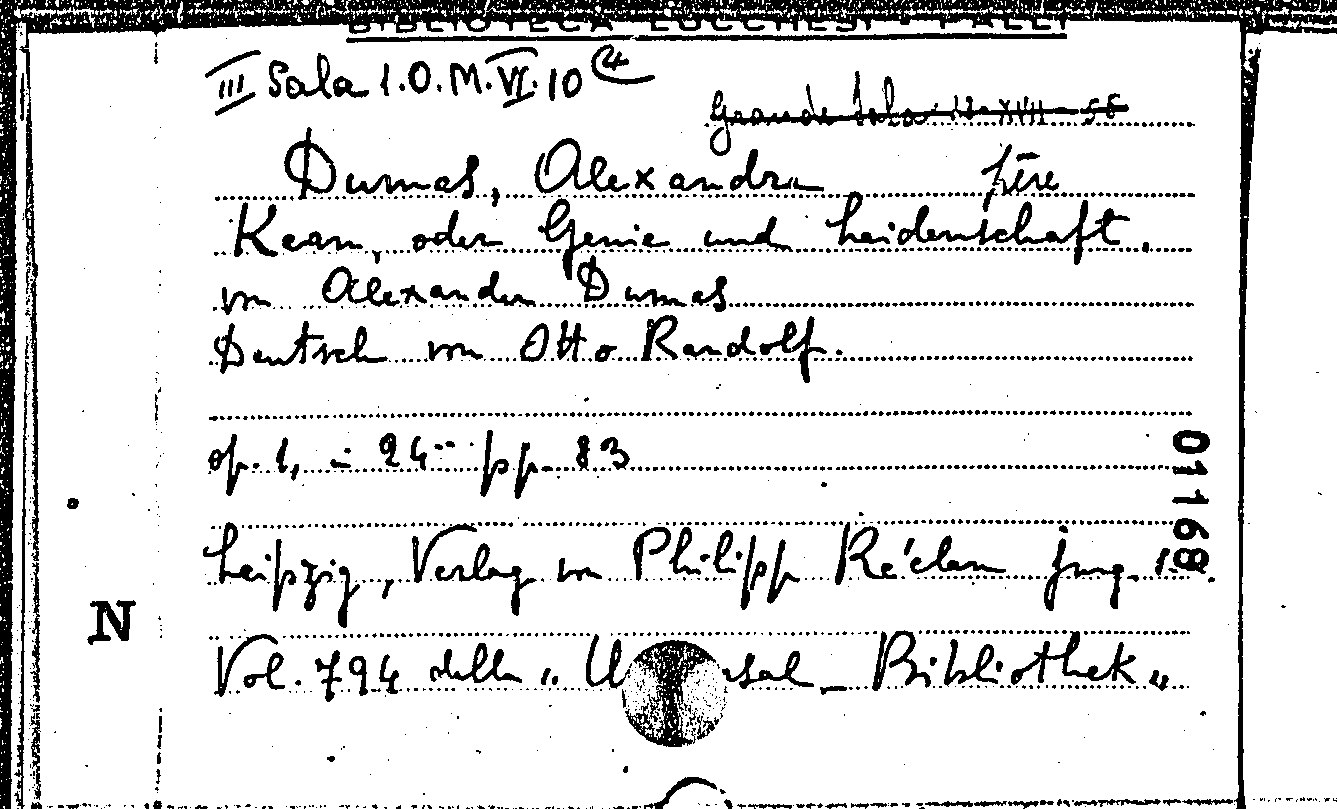 BIBLIOTECA LUCCHESI - PALLI
III Sala 1.O.M.VI.10 (4
Grande Sala 12-XVII-56
Dumas, Alexandre père
Kean, oder Genie und Leidenschaft.
von Alexander Dumas
Deutsch von Otto Randolf.
op. 1, in 24° pp. 83
Leipzig, Verlag von Philipp Réclam jung. s.
Vol. 794 della "U sal - Bibliothek"
01168
N